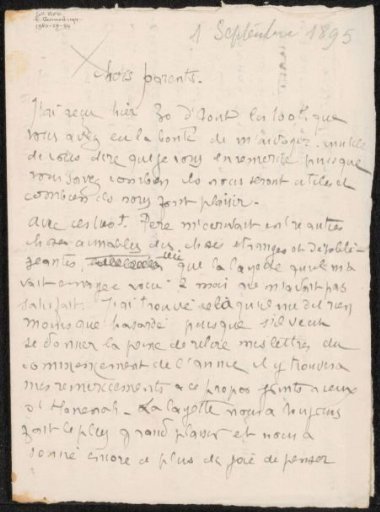 1 Septembre 1895
Chers parents.
J'ai reçu hier 30 d'Août les 100f que
vous avez eu la bonté de m'envoyer. inutile
de vous dire que je vous en remercie puisque
vous savez combien ils nous seront utiles et
combien ils nous font plaisir.
Avec ces Père m'écrivait entre autres
choses aimables des choses étranges et désobli-
geantes, que la layette qu'elle m'a
vait envoyée voici 2 mois ne m'avait pas
satisfait. J'ai trouvé cela qu'elle me dit rien
moins que hasardé puisque s'il veut
se donner la peine de relire mes lettres du
commencement de l'année il y trouvera
mes remerciements à ce propos joints à ceux
d'Hannah. La layette nous a toujours
fait le plus grand plaisir et nous a
donné encore de plus de joie de penser